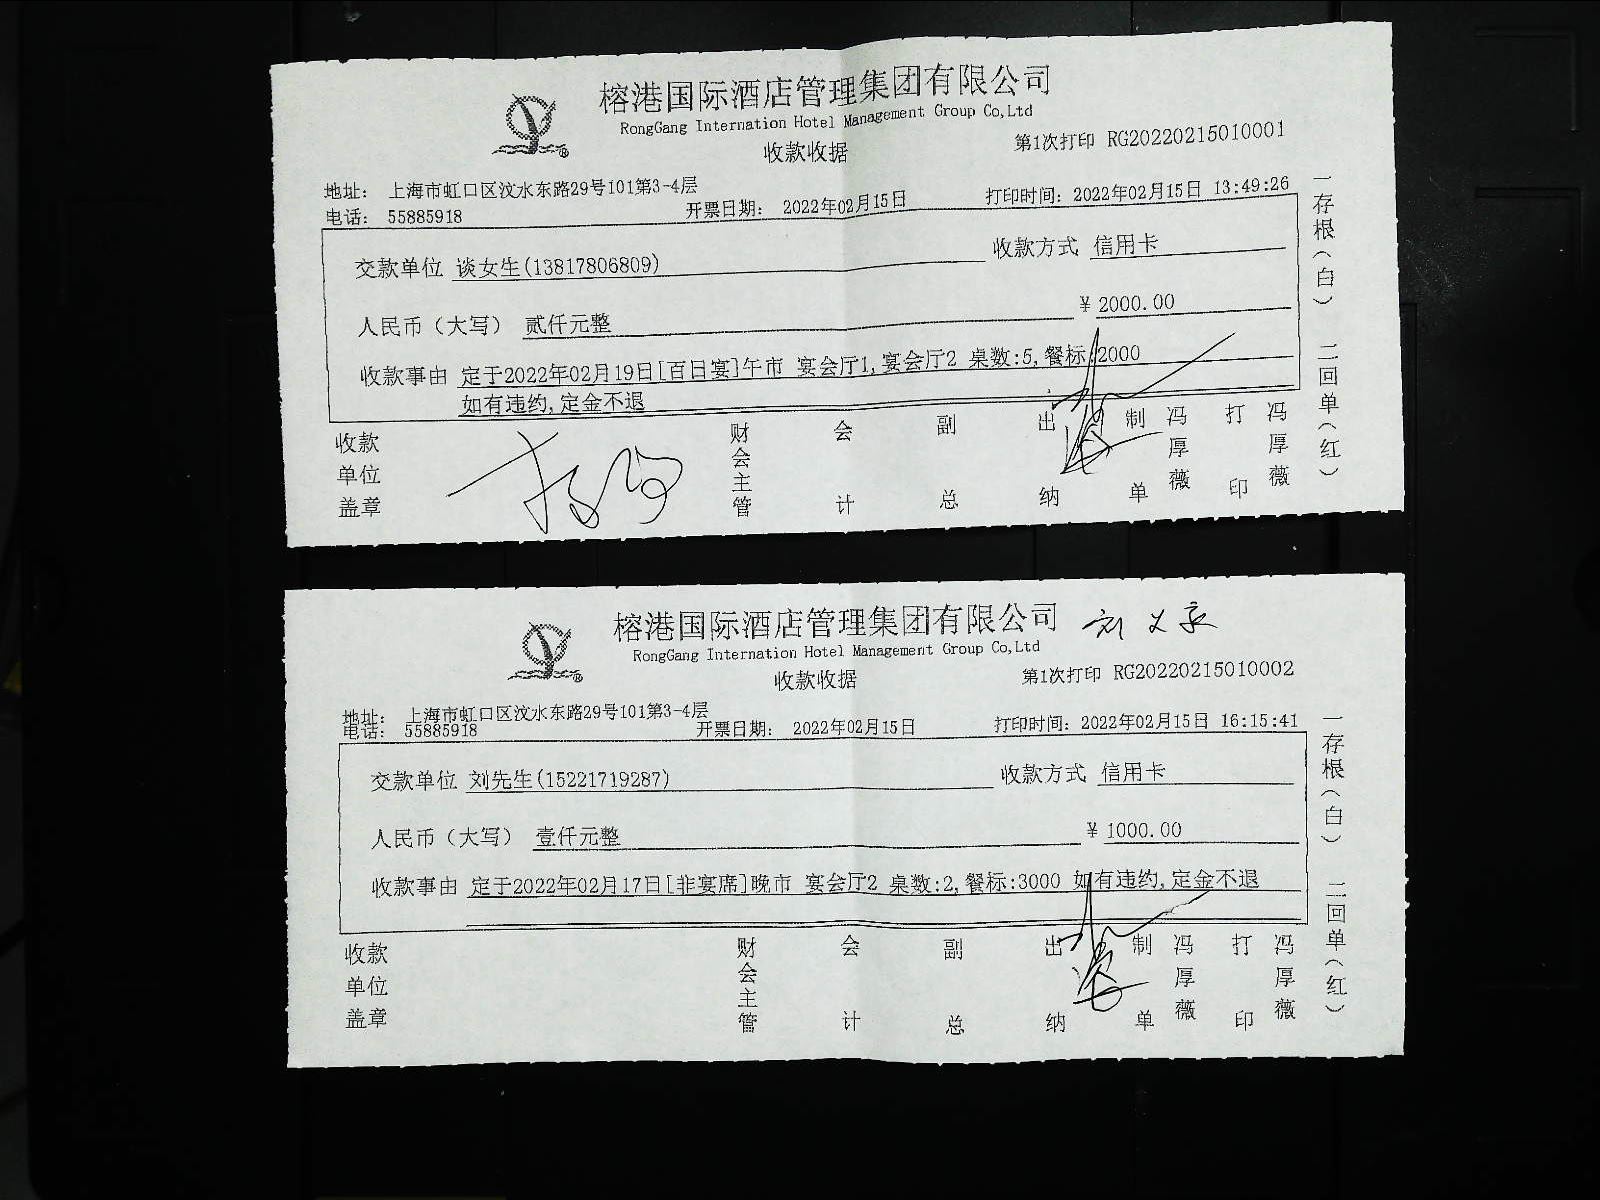 榕港国际酒店管理集团有限公司
RongGang Internation Hotel Management Group Co,Ltd
收款收据
第1次打印 RG20220215010001
地址： 上海市虹口区汶水东路29号101第3-4层
电话： 55885918
开票日期： 2022年02月15日
打印时间：2022年02月15日 13:49:26
交款单位 谈女生(13817806809)
收款方式 信用卡
人民币（大写） 贰仟元整
¥ 2000.00
收款事由 定于2022年02月19日[百日宴]午市 宴会厅1,宴会厅2 桌数:5,餐标:2000
如有违约,定金不退
收款单位盖章
财会主管
会计
副总
出纳
制单
冯厚薇
打印
冯厚薇
一存根（白） 二回单（红）
榕港国际酒店管理集团有限公司
RongGang Internation Hotel Management Group Co,Ltd
收款收据
第1次打印 RG20220215010002
地址： 上海市虹口区汶水东路29号101第3-4层
电话： 55885918
开票日期： 2022年02月15日
打印时间：2022年02月15日 16:15:41
交款单位 刘先生(15221719287)
收款方式 信用卡
人民币（大写） 壹仟元整
¥ 1000.00
收款事由 定于2022年02月17日[非宴席]晚市 宴会厅2 桌数:2,餐标:3000 如有违约,定金不退
收款单位盖章
财会主管
会计
副总
出纳
制单
冯厚薇
打印
冯厚薇
一存根（白） 二回单（红）